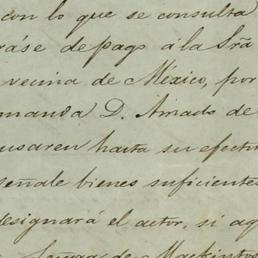 con lo que se consulta
ráse de pago á la Srã
vecina de México, por
manda D. Amado de
usaren hasta su efectiv
señale bienes suficientes
designará el actor, si aq
de Mackintos